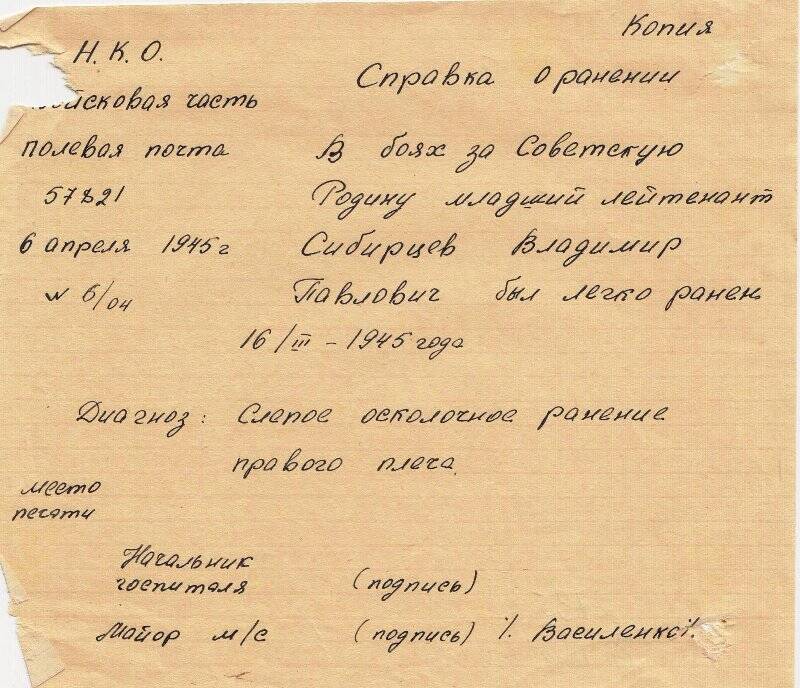 Копия
Н.К.О.
Справка о ранении
войсковая часть
полевая почта
В боях за Советскую
57821
Родину младший лейтенант
6 апреля 1945 г
Сибирцев Владимир
№ 6/04
Павлович был легко ранен
16/III - 1945 года
Диагноз: Слепое осколочное ранение
правого плеча
место
печати
Начальник
госпиталя (подпись)
Майор м/с (подпись) /. Василенко/.